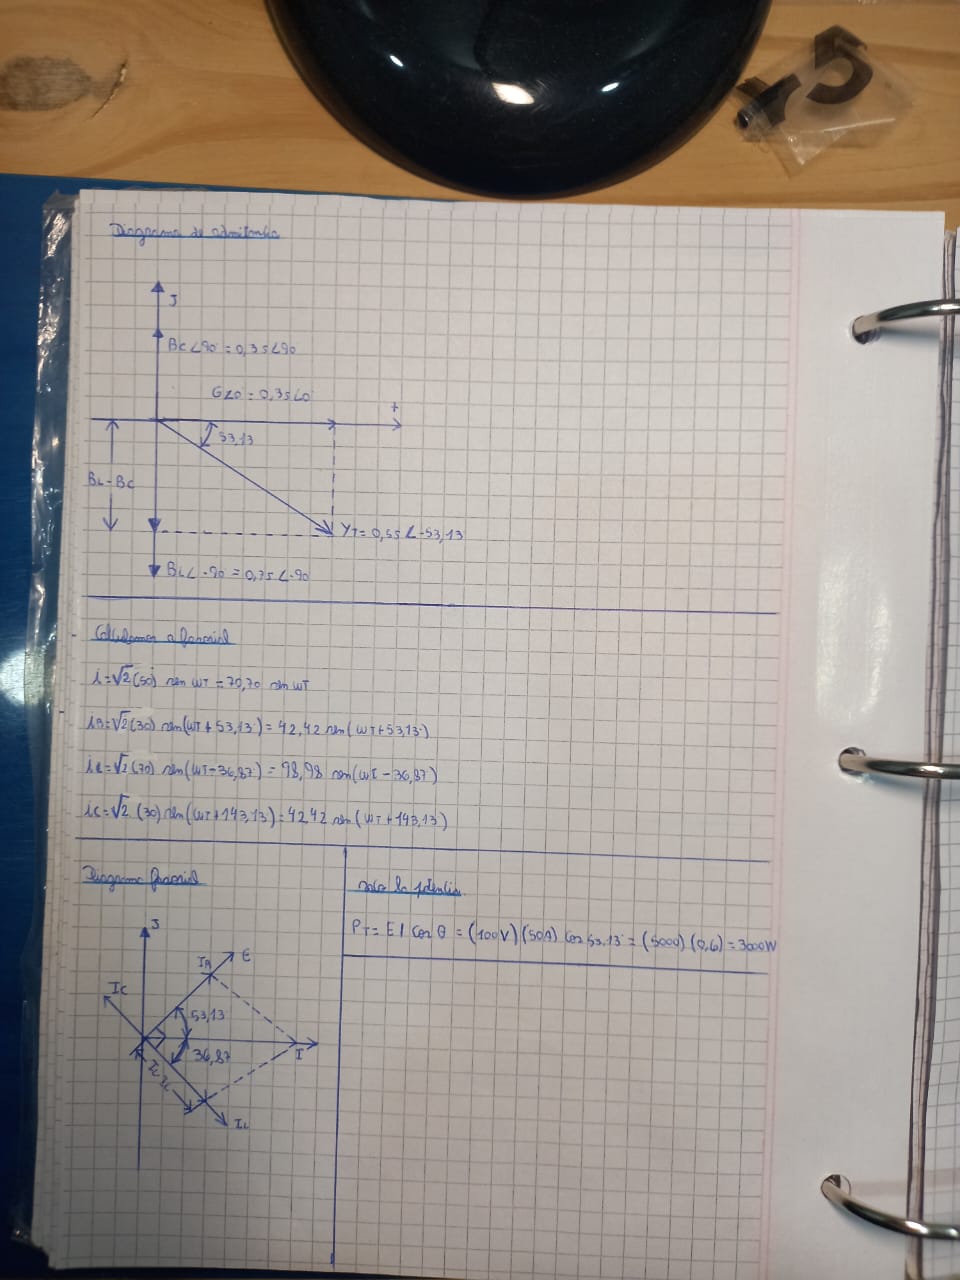 Diagrama de admitancia
J
BC∠90° = 0,3S∠90
G∠0° = 0,3S∠0°
+
53,13
BL-BC
YT = 0,5S∠-53,13
BL∠-90 = 0,7S∠-90
i=√2(50) sen WT = 70,70 sen WT
=√2(30) sen(WT+53,13°) = 42,42 sen(WT+53,13°)
iL=√2(70) sen(WT-36,87) = 98,98 sen(WT-36,87)
iC=√2 (30) sen(WT+143,13) = 42,42 sen(WT+143,13)
Diagrama fasorial
la potencia
PT= E I Cos θ = (100V)(50A) Cos 53,13° = (5000)(0,6) = 3000W
J
E
IR
IC
53,13
36,87
I
IL